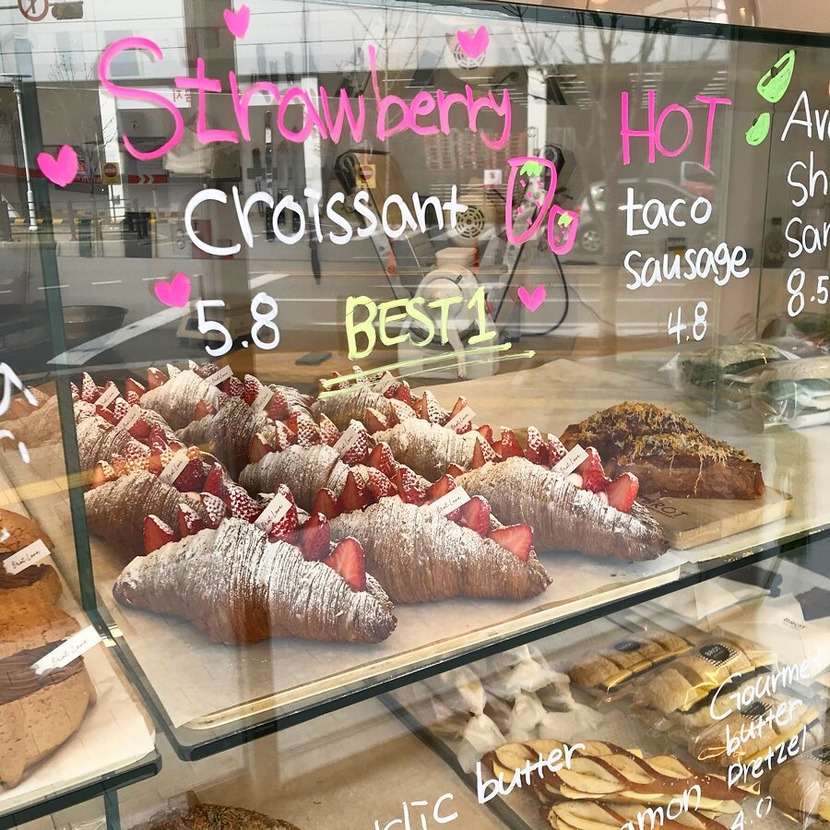 Strawberry
Croissant
5.8 BEST 1
HOT
taco
sausage
4.8
8.5
Gourmet
butter
pretzel
4.0
butter